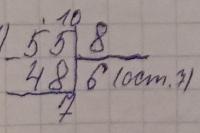 10
) 55 8
- 48 6 (ост. 7)
7